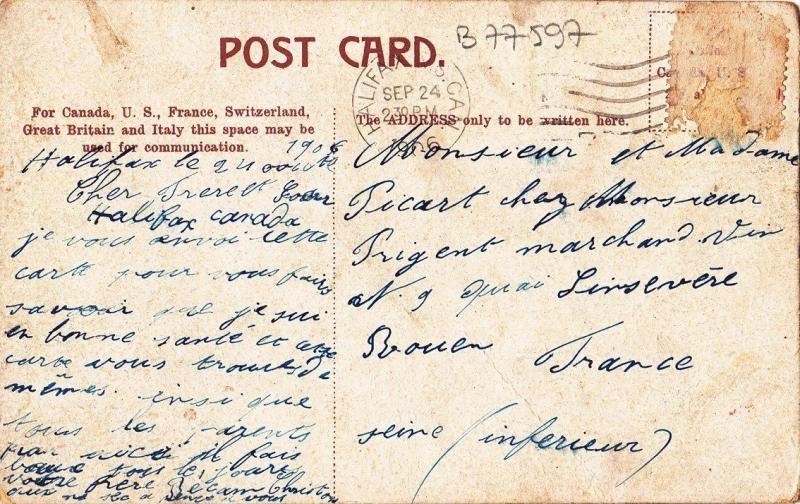 POST CARD.
B 77597
HALIFAX CAN
SEP 24
2 30 P.M.
1906
For Canada, U. S., France, Switzerland,
Great Britain and Italy this space may be
used for communication.
The ADDRESS only to be written here.
Halifax le 24 1906
Cher frere et Soeur
Halifax canada
je vous anvoi cette
carte pour vous fairs
savoir que je sui
en bonne santé et
carte vous trouve de
mêmes. insi que
tous les parents
par ici il fais
tous les jours
votre frère
Monsieur et Madame
Picart chez Monsieur
Prigent marchand. vin
N. 9 quai Linsevére
Rouen France
seine (inferieur)